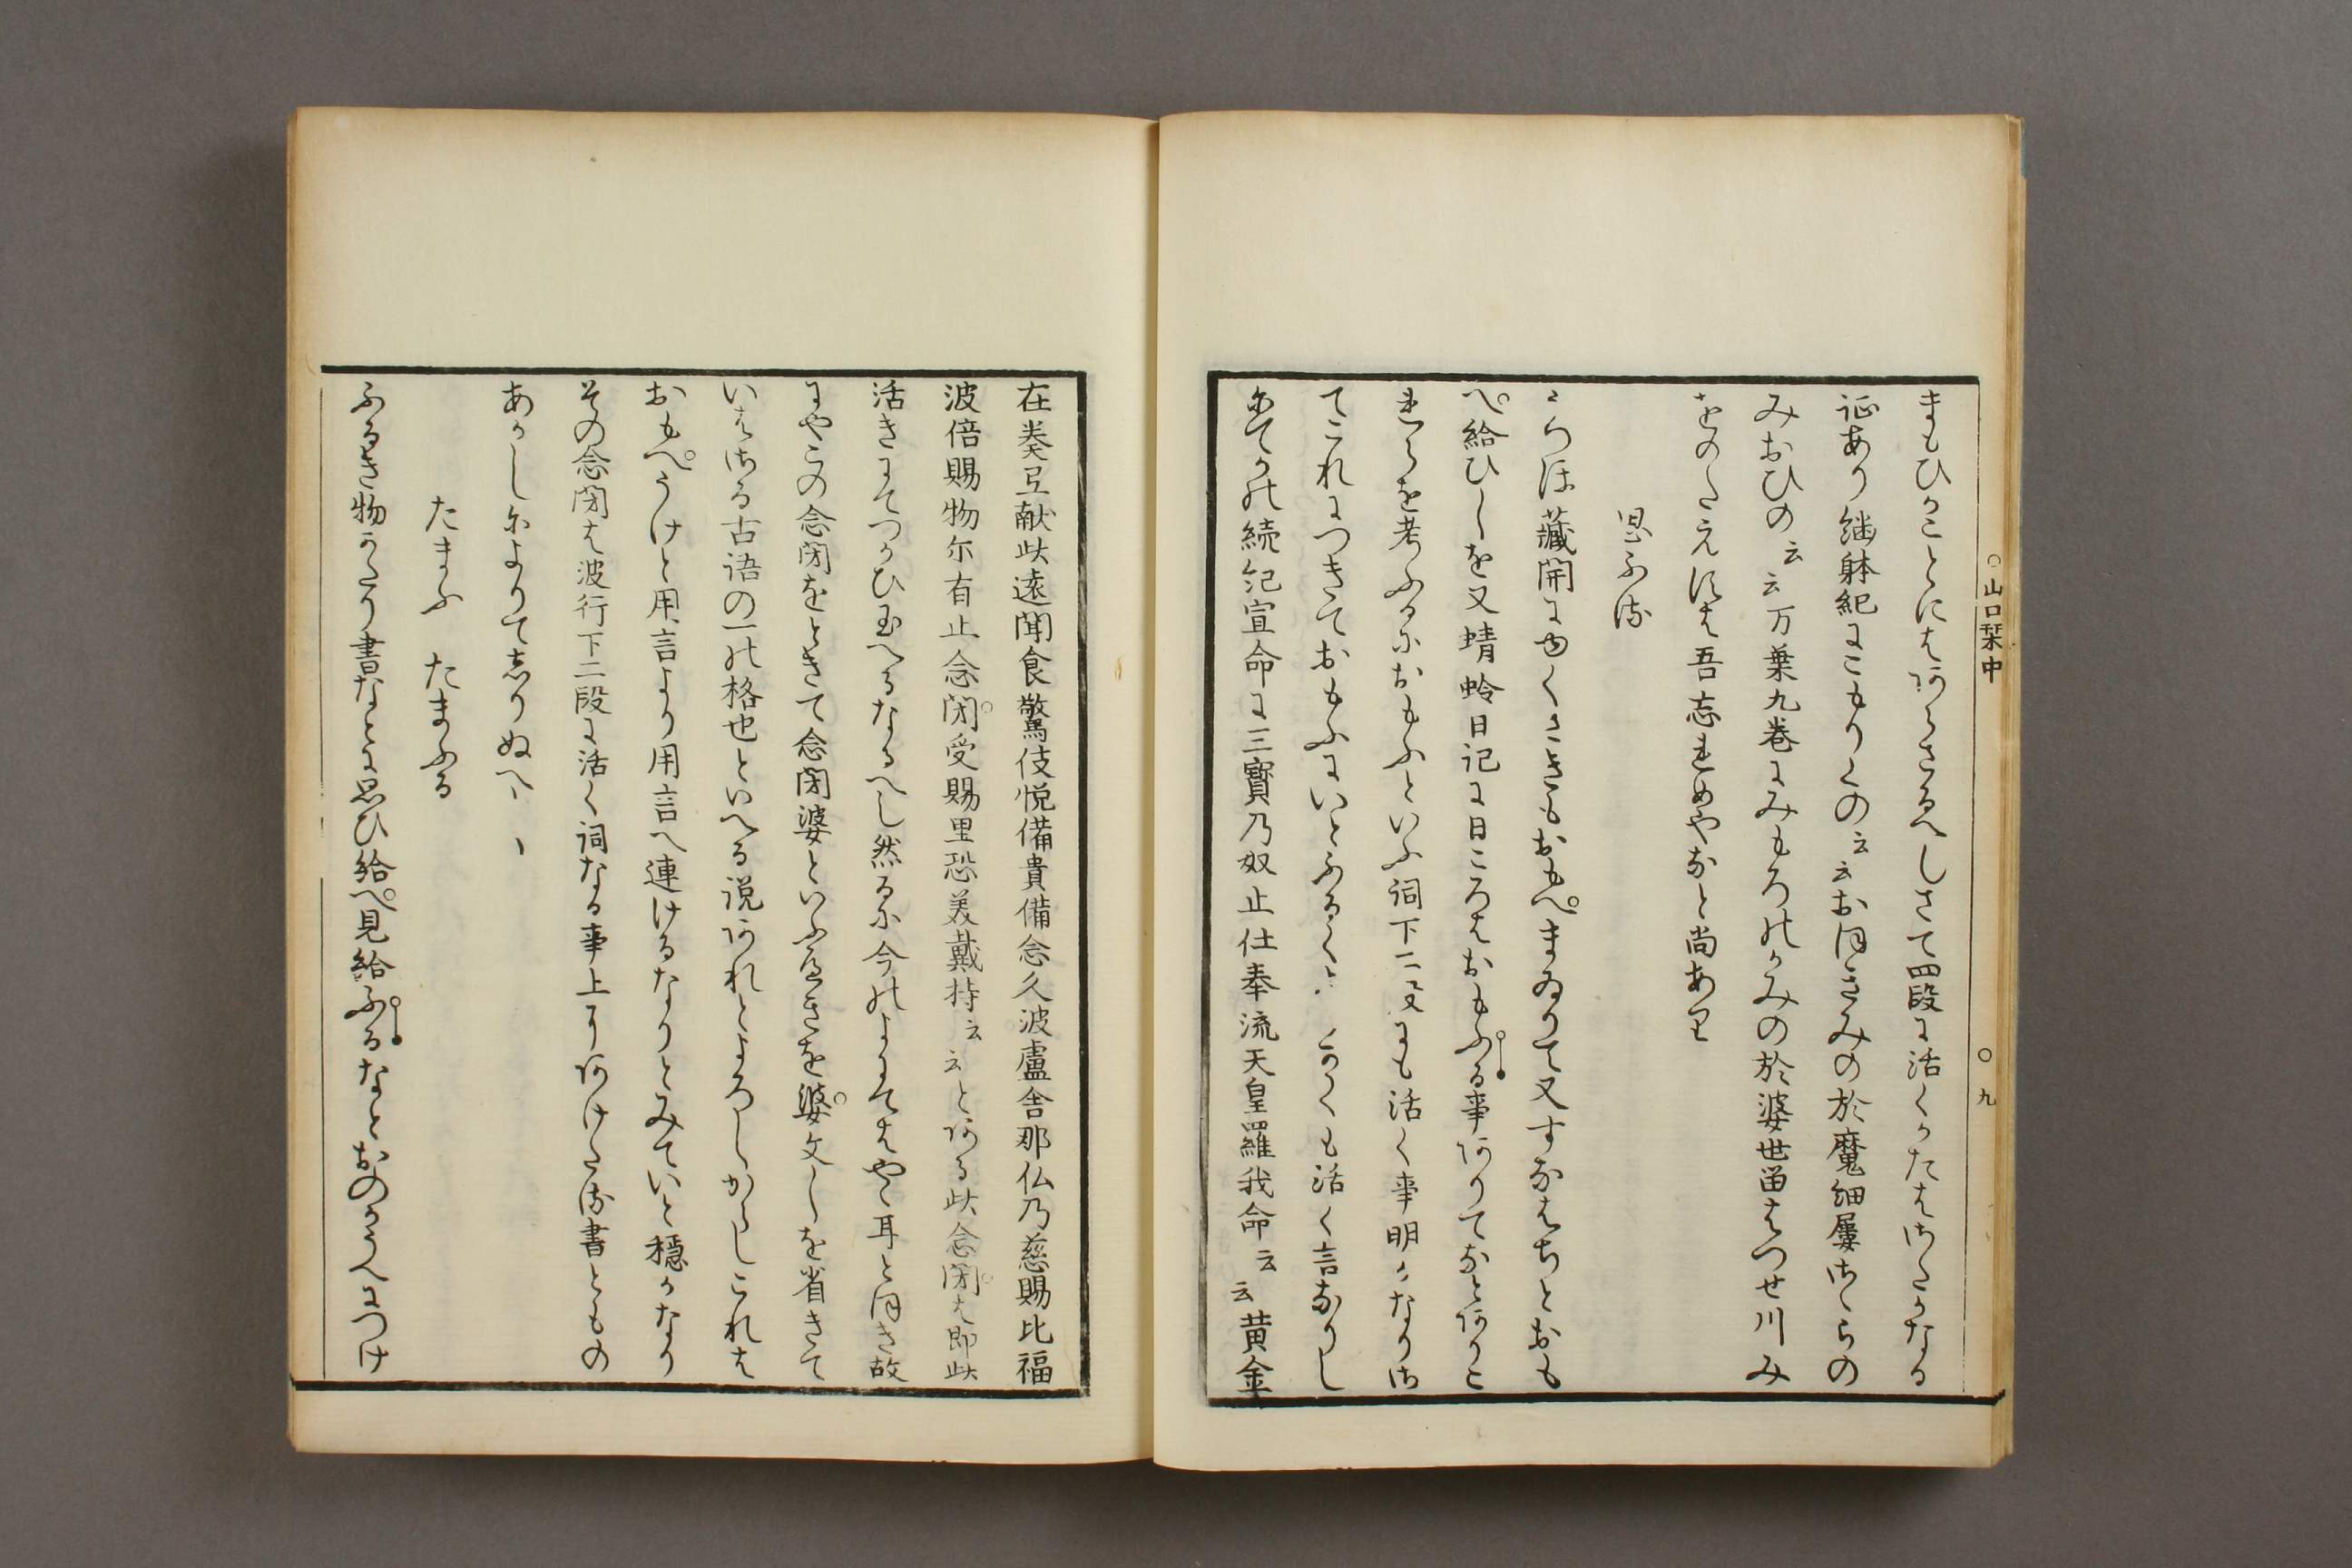 ○山口栞中
○九
まもひかことにはあらさるへしさて四段に活くかたはたしかなる
証あり継躰紀にこもりくの云云おほきみの於魔細屢たゝらの
みおひの云云万葉九巻にみもろのかみの於婆世留はつせ川み
をのたえすは吾忘れめやなと尚あり
思ふる
うつほ藏開にゆくさきもおもへまゐりて又すなはちとおも
へ給ひしを又蜻蛉日記に日ころはおもふる事ありてなとあるこ
れらを考ふるにおもふといふ詞下二段にも活く事明かなりさ
てこれにつきておもふにいとふるくは かくも活く言なりし
にてかの続紀宣命に三寳乃奴止仕奉流天皇羅我命云云黄金
在奏弖献此遠聞食驚伎悦備貴備念久波盧舎那仏乃慈賜比福
波倍賜物尓有止念閇受賜里恐美戴持云云とある此念閇は即此
活きにてつかひ玉へるなるへし然るに今のよにてはやゝ耳とほき故
にやこの念閇をときて念閇婆といふへきを婆文しを省きて
いはさる古語の一の格也といへる説あれとよろしからしこれは
おもへうけと用言より用言へ連けるなりとみていと穏かなり
その念閇は波行下二段に活く詞なる事上にあけたる書ともの
あかしによりてしりぬへゝ ゝ
たまふ たまふる
ふるき物かたり書なとに思ひ給へ見給ふるなとおのかうへにつけ